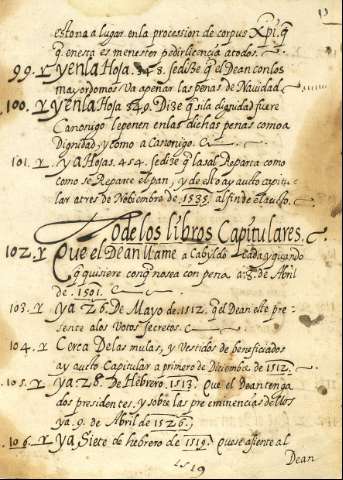 estona a lugar en la procession de corpus Xpi. q̃
q̃ en esta es menester pedir licencia a todos.
99. Y yen la Hoja. 348. se dize q̃ el Dean con los
mayordomos Va apeñar las penas de Navidad.
100. Y yen la Hoja 349. Dize q̃ si la dignidad fuere
Canonigo le penen en las dichas penas como a
Dignidad, y como a Canonigo.
101. Y ya Hojas. 454. se dize q̃ la sal Reparta como
como se Reparte el pan, y de ello ay aucto capitu-
lar a tres de Nobiembre de 1535. al fin de el aucto.
To de los libros Capitulares.
102. Y Que el Dean llame a Cabildo cada y quando
q̃ quisiere con q̃ no sea con pena. a 8. de Abril
de. 1501.
103. Y ya 26. De Mayo de. 1512. q̃ el Dean este pre-
sente a los Votos secretos.
104. Y Cerca De las mulas, y Vestidos de beneficiados
ay aucto Capitular a primero de Diciembre. de 1512.
105. Y ya 28. De Hebrero. 1513. Que el Dean tenga
dos presidentes. y sobre las preeminencias dellos
ya. 9. de Abril de 1526.
106. Y ya Siete de hebrero de 1519. Que se asiente al
Dean
19